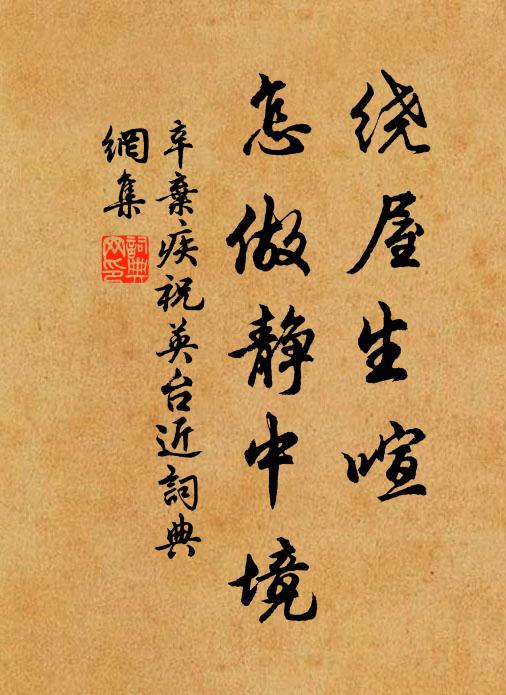 绕屋生喧
怎做静中境
辛棄疾祝英台近詞典
網集
詞典
网印